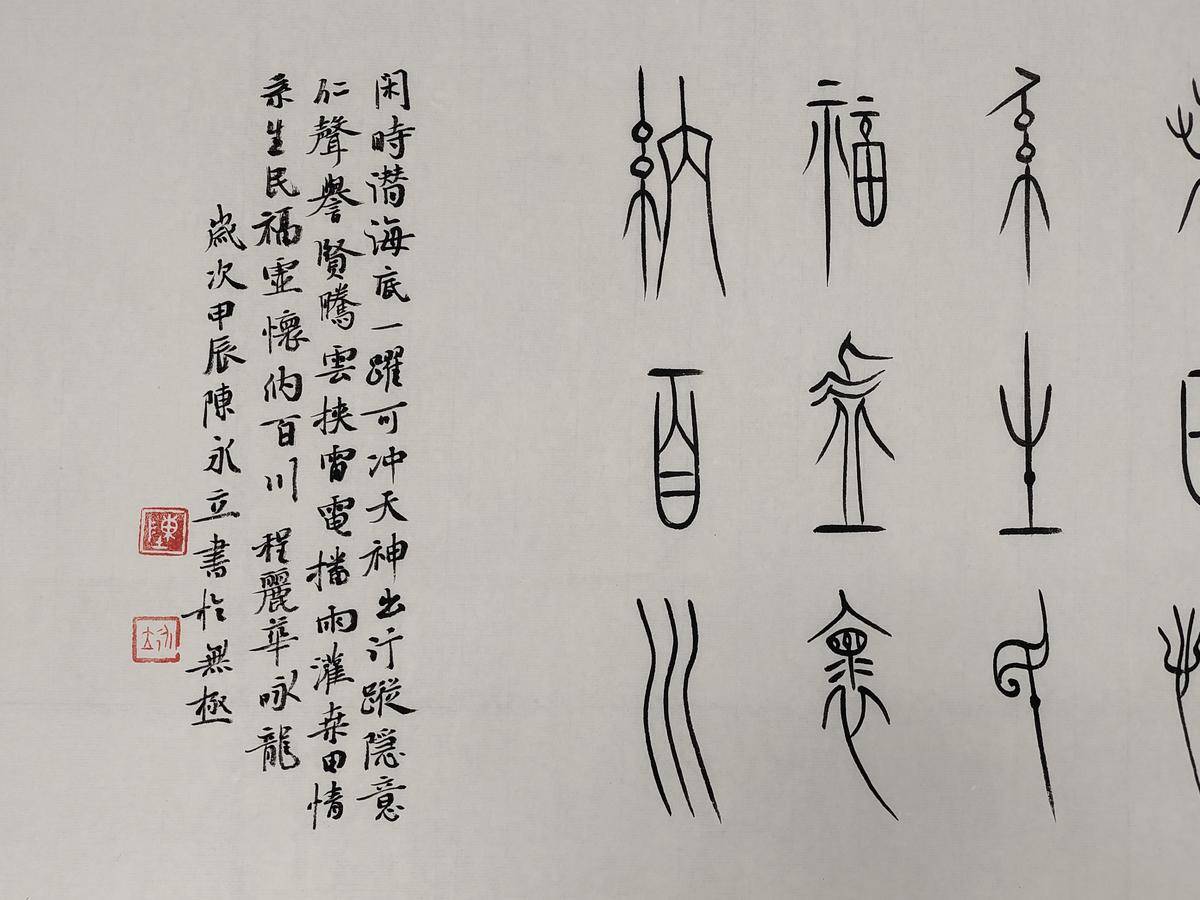 系生民
福虛懷
納百川
閑時潛海底一躍可冲天神出行蹤隐意
仁聲譽賢騰雲挾雷電播雨灌桑田情
系生民福虛懷納百川 程麗華咏龍
歲次甲辰陳永立書於無極
陳
永立